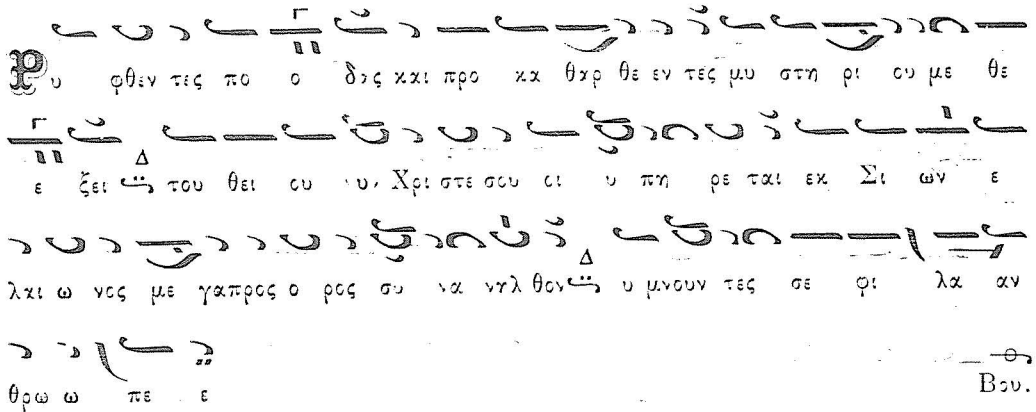 Ρυ φθεν τες πο ο δας και προ κα θαρ θε εν τές μυ στη ρι ου με θε
ε ξει Δ του θει ου υ, Χρι στε σου οι υ πη ρε ται εκ Σι ων ε
λαι ω νος με γαπρος ο ρος συ να νηλ θον Δ υ μνουν τες σε φι λα αν
θρω ω πε ε
Βου.